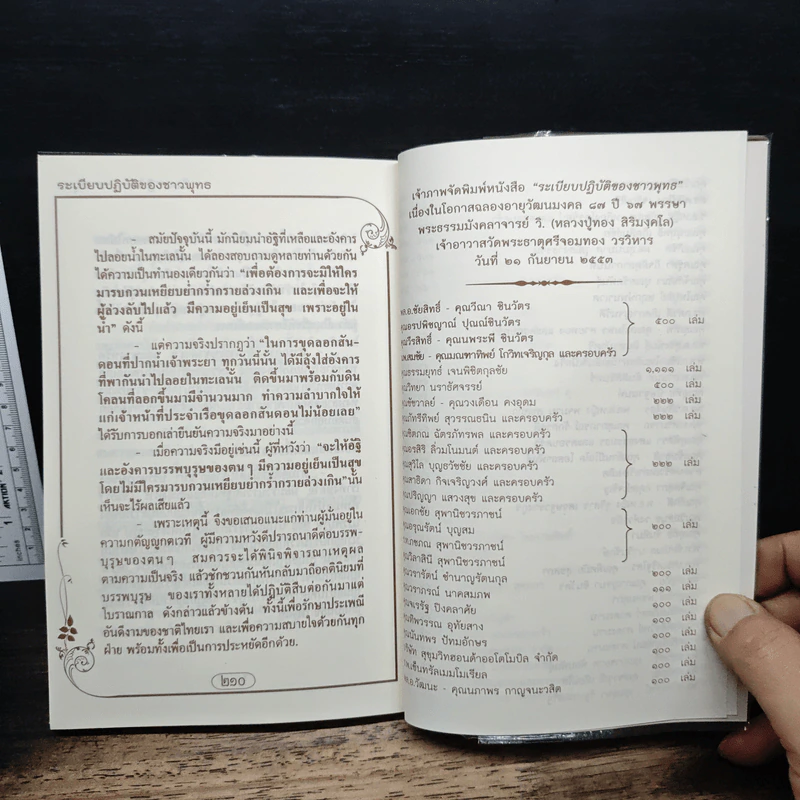 ระเบียบปฏิบัติของชาวพุทธ
- สมัยปัจจุบันนี้ มักนิยมนำอัฐิที่เหลือและอังคาร
ไปลอยน้ำในทะเลนั้น ได้ลองสอบถามดูหลายท่านด้วยกัน
ได้ความเป็นทำนองเดียวกันว่า “เพื่อต้องการจะมิให้ใคร
มารบกวนเหยียบย่ำกร้ำกรายล่วงเกิน และเพื่อจะให้
ผู้ล่วงลับไปแล้ว มีความอยู่เย็นเป็นสุข เพราะอยู่ใน
น้ำ” ดังนี้
- แต่ความจริงปรากฏว่า “ในการขุดลอกสัน-
ดอนที่ปากน้ำเจ้าพระยา ทุกวันนี้นั้น ได้มีลุ้งใส่อังคาร
ที่พากันนำไปลอยในทะเลนั้น ติดขึ้นมาพร้อมกับดิน
โคลนที่ลอกขึ้นมามีจำนวนมาก ทำความลำบากใจให้
แก่เจ้าหน้าที่ประจำเรือขุดลอกสันดอนไม่น้อยเลย”
ได้รับการบอกเล่ายืนยันความจริงมาอย่างนี้
- เมื่อความจริงมีอยู่เช่นนี้ ผู้ที่หวังว่า “จะให้อัฐิ
และอังคารบรรพบุรุษของตนๆ มีความอยู่เย็นเป็นสุข
โดยไม่มีใครมารบกวนเหยียบย่ำกร้ำกรายล่วงเกิน”นั้น
เห็นจะไร้ผลเสียแล้ว
- เพราะเหตุนี้ จึงขอเสนอแนะแก่ท่านผู้มั่นอยู่ใน
ความกตัญญูกตเวที ผู้มีความหวังดีปรารถนาดีต่อบรรพ-
บุรุษของตนๆ สมควรจะได้พินิจพิจารณาเหตุผล
ตามความเป็นจริง แล้วชักชวนกันหันกลับมาถือคตินิยมที่
บรรพบุรุษ ของเราทั้งหลายได้ปฏิบัติสืบต่อกันมาแต่
โบราณกาล ดังกล่าวแล้วข้างต้น ทั้งนี้เพื่อรักษาประเพณี
อันดีงามของชาติไทยเรา และเพื่อความสบายใจด้วยกันทุก
ฝ่าย พร้อมทั้งเพื่อเป็นการประหยัดอีกด้วย.
๒๑๐
เจ้าภาพจัดพิมพ์หนังสือ “ระเบียบปฏิบัติของชาวพุทธ”
เนื่องในโอกาสฉลองอายุวัฒนมงคล ๘๗ ปี ๖๗ พรรษา
พระธรรมมังคลาจารย์ วิ. (หลวงปู่ทอง สิริมงฺคโล)
เจ้าอาวาสวัดพระธาตุศรีจอมทอง วรวิหาร
วันที่ ๒๑ กันยายน ๒๕๕๓
ชัยสิทธิ์ - คุณวีณา ชินวัตร
ปุณณ์ชินวัตร
- คุณพระพี ชินวัตร
- คุณมณฑาทิพย์ โกวิทเจริญกุล และครอบครัว
๕๐๐ เล่ม
เจนพิชิตกุลชัย ๑,๑๑๑ เล่ม
วิทยา นราธัศจรรย์ ๕๐๐ เล่ม
- คุณวงเดือน คงอุดม ๒๒๒ เล่ม
สุวรรณธนิน และครอบครัว ๒๒๒ เล่ม
ฉัตรภัทรพล และครอบครัว
ลิ่วมโนมนต์ และครอบครัว
บุญธวัชชัย และครอบครัว
กิจเจริญวงศ์ และครอบครัว
แสวงสุข และครอบครัว
๒๒๒ เล่ม
เอกชัย สุพานิชวรภาชน์
อรุณรัตน์ บุญสม
สุพานิชวรภาชน์
วิลาสินี สุพานิชวรภาชน์
๒๐๐ เล่ม
วรารัตน์ ชำนาญรัตนกุล ๒๐๐ เล่ม
วราภรณ์ นาคสมภพ ๑๑๑ เล่ม
ปิงคลาศัย ๑๐๐ เล่ม
ทิพวรรณ อุทัยสาง ๑๐๐ เล่ม
นันทพร ปัทมอักษร ๑๐๐ เล่ม
สุขุมวิทฮอนด้าออโตโมบิล จำกัด ๑๐๐ เล่ม
เซ็นทรัลเมมโมเรียล ๑๐๐ เล่ม
วัฒนะ - คุณนภาพร กาญจนะวสิต ๑๐๐ เล่ม